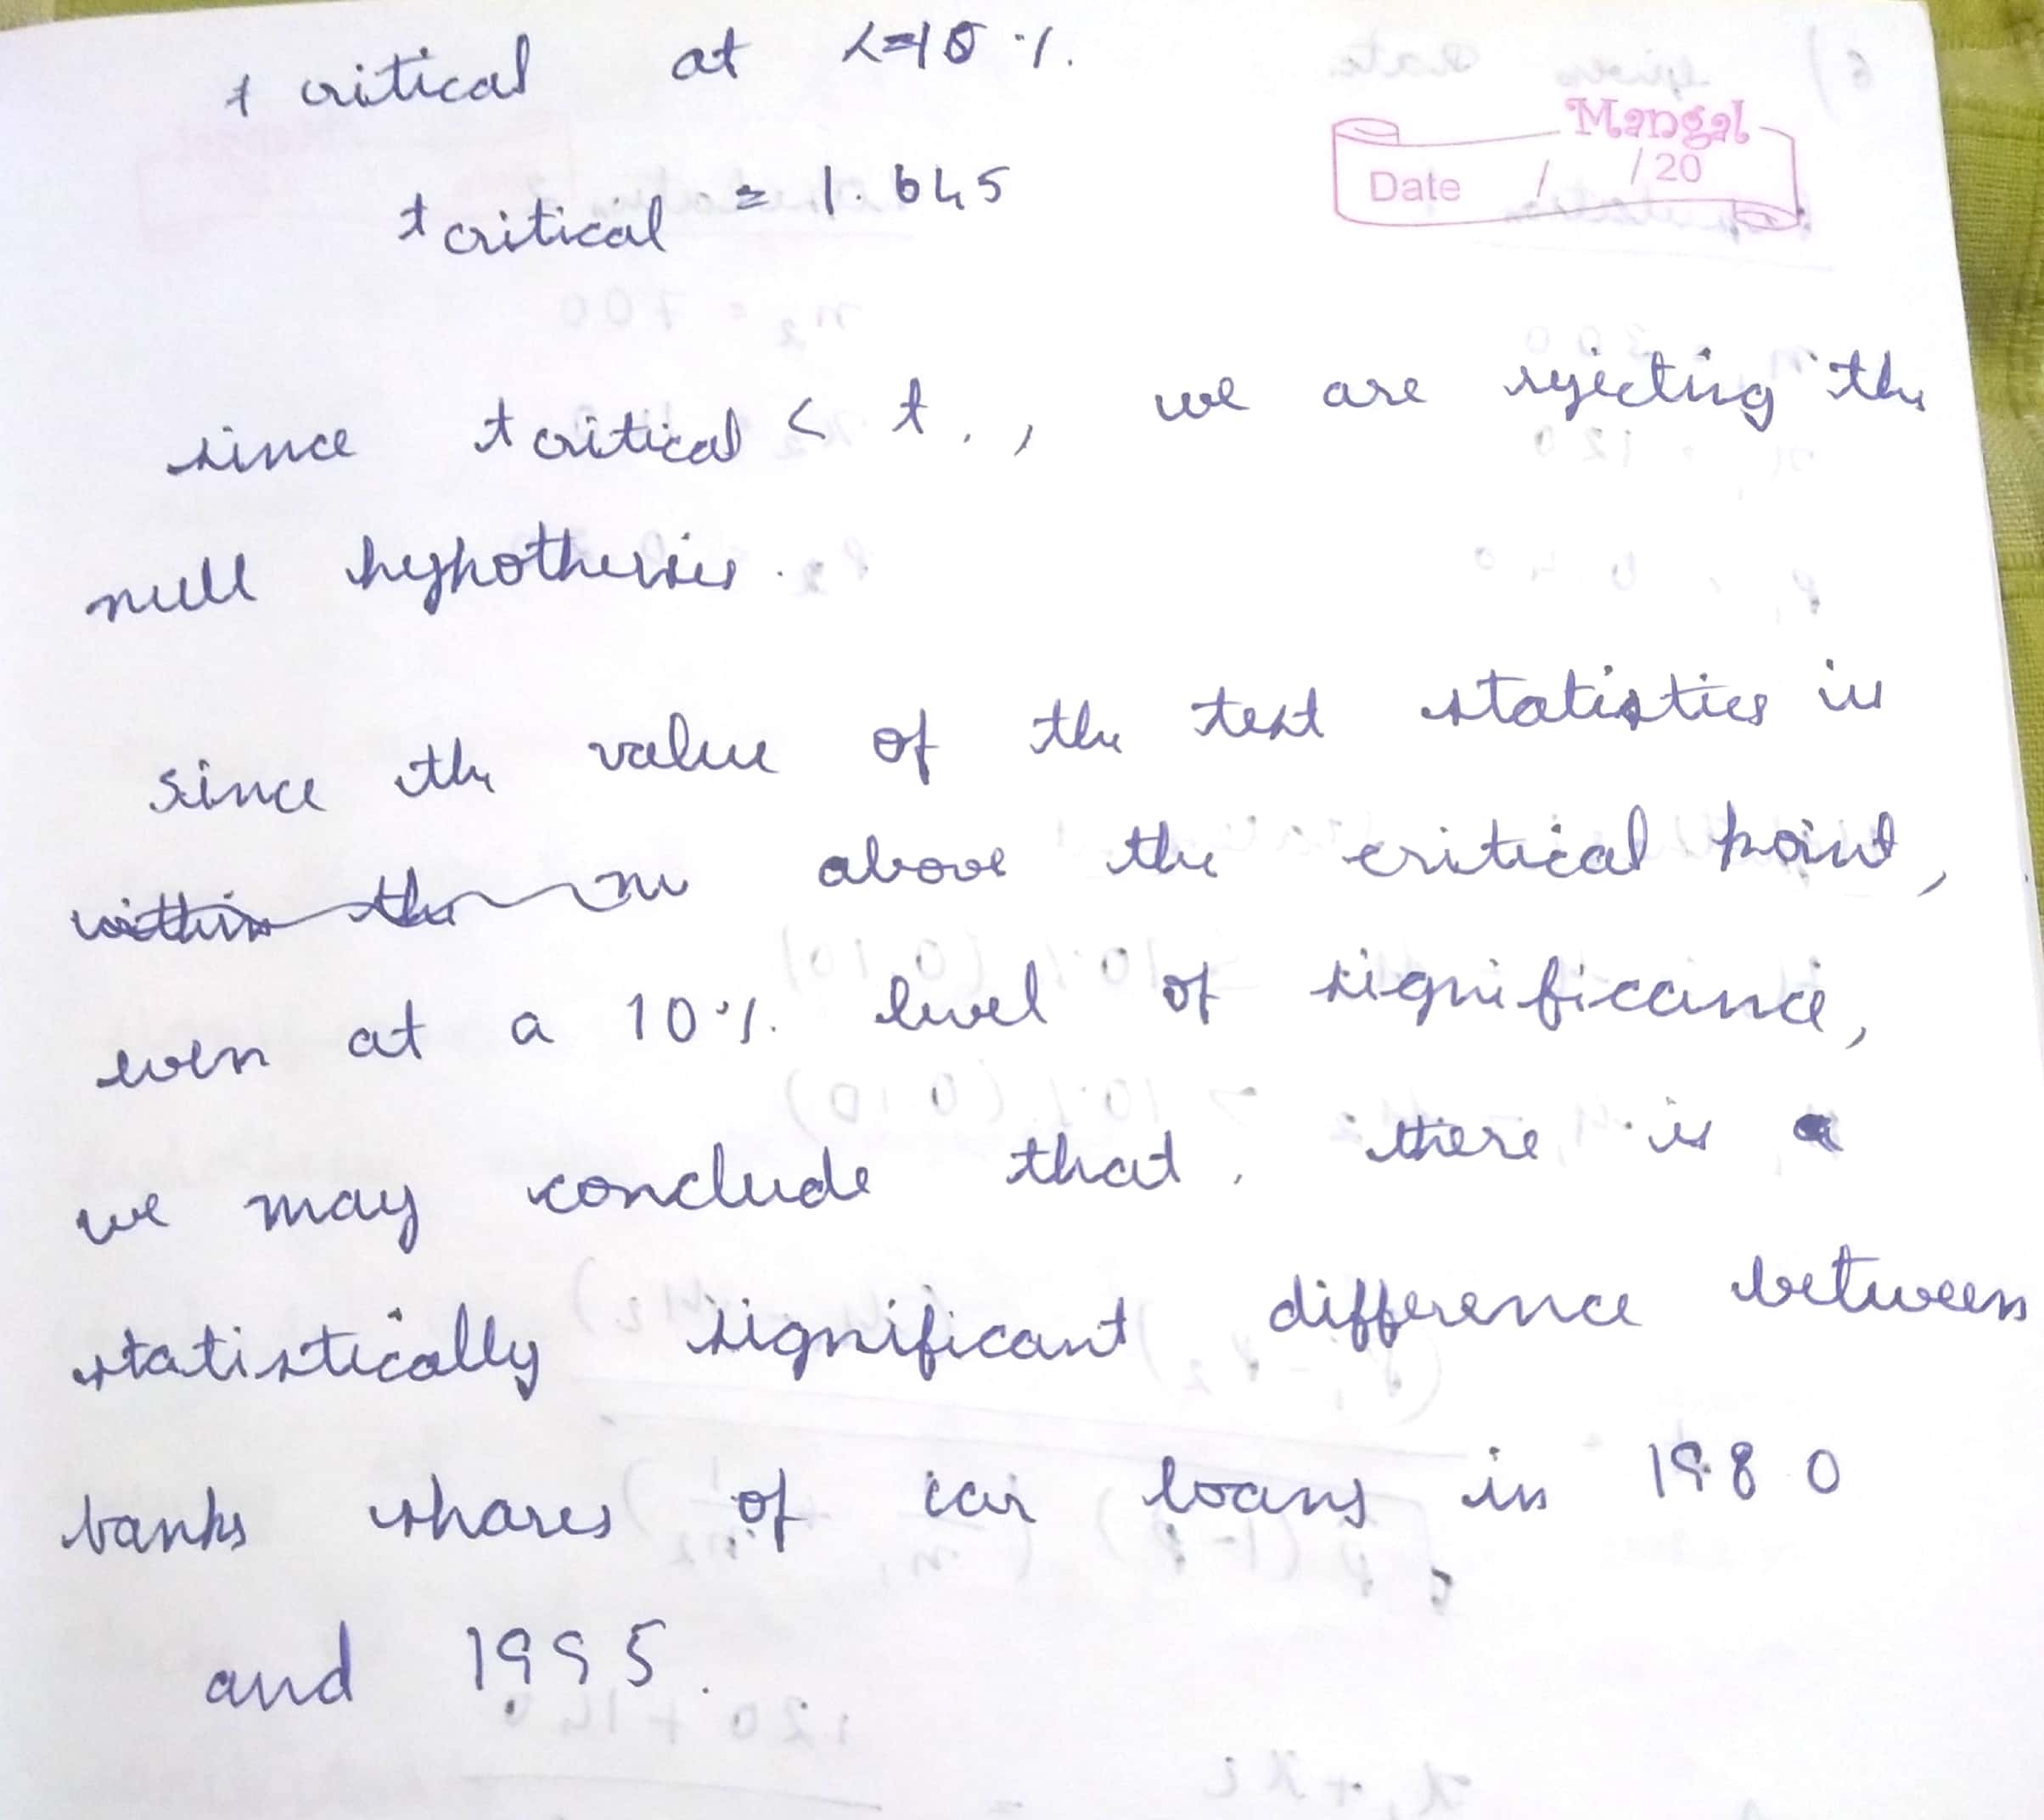 t critical at α=10 %.
Mangal
Date / /20
t critical = 1.645
since t critical < t., we are rejecting the
null hypothesis.
since the value of the test statistics is
above the critical point,
even at a 10 %. level of significance,
we may conclude that, there is a
statistically significant difference between
banks shares of car loans in 1980
and 1995.